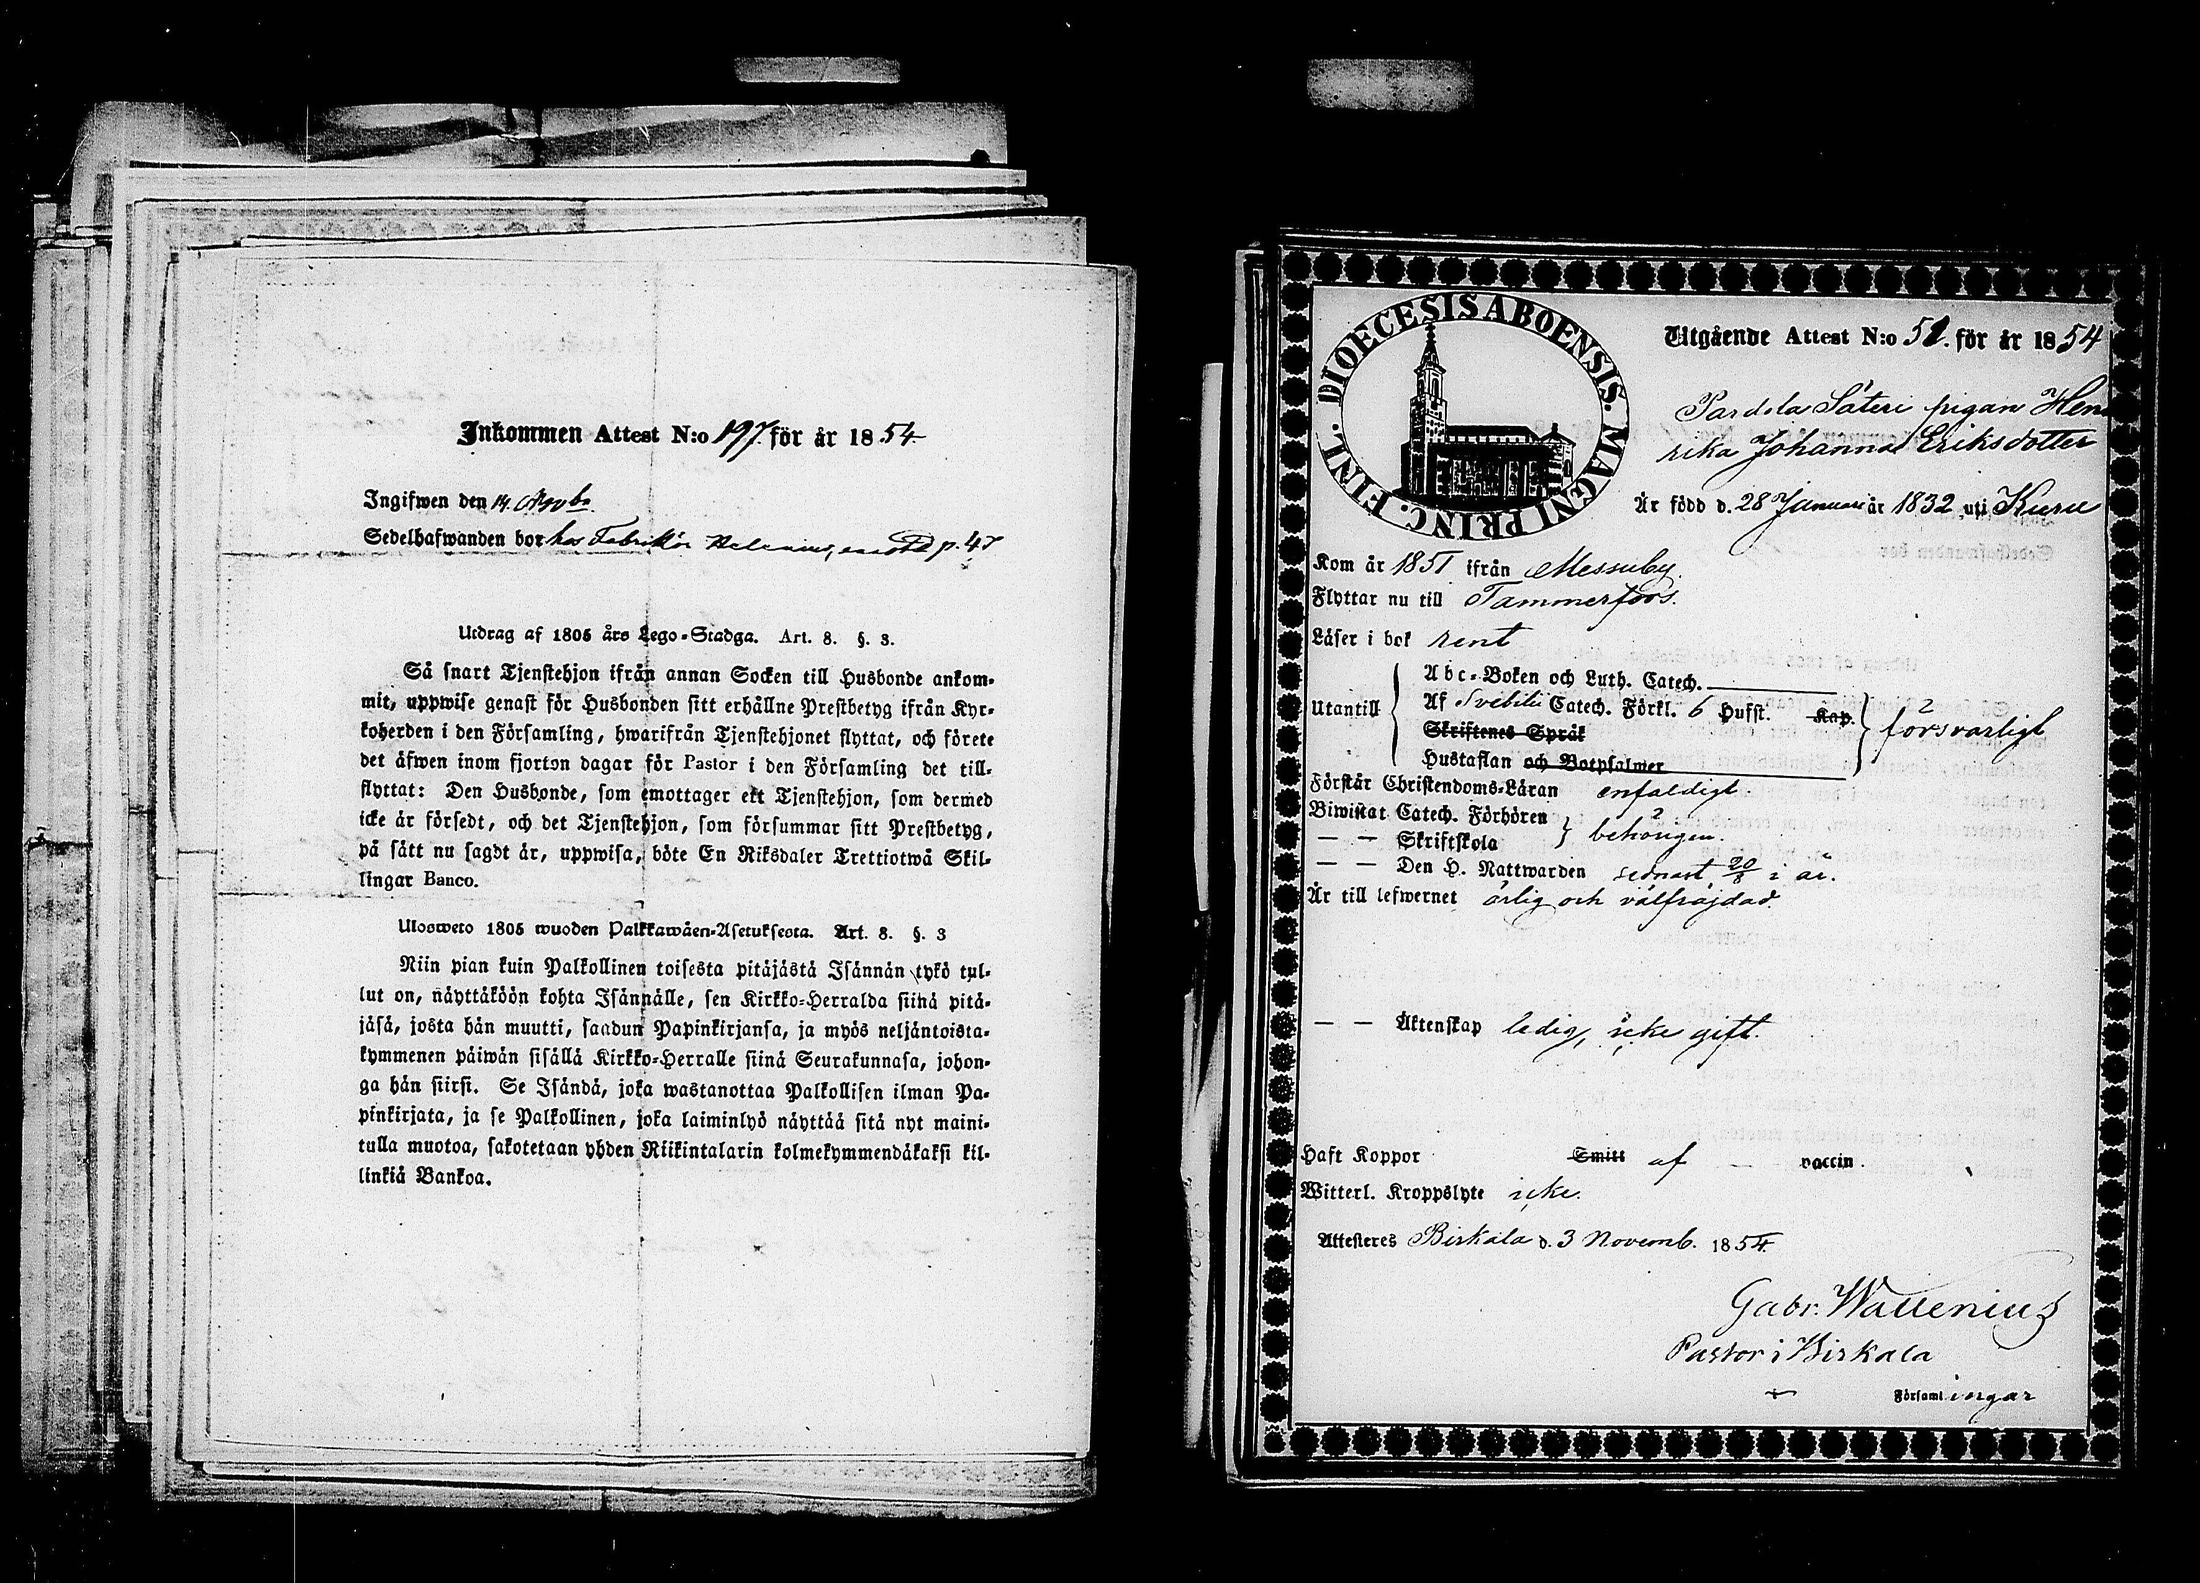 Inkommen Attest N:o 197. för år 1854
Ingifwen den 14. Novbr
Sedelhafwanden bor hos Fabrikör p. 47
Utdrag af 1805 års Lego-Stadga. Art. 8. §. 3.
Så snart Tjenstehjon ifrån annan Socken till Husbonde ankom-
mit, uppwise genast för Husbonden sitt erhållne Prestbetyg ifrån Kyr-
koherden i den Församling, hwarifrån Tjenstehjonet flyttat, och förete
det äfwen inom fjorton dagar för Pastor i den Församling det till-
flyttat: Den Husbonde, som emottager ett Tjenstehjon, som dermed
icke är försedt, och det Tjenstehjon, som försummar sitt Prestbetyg,
på sätt nu sagdt är, uppwisa, böte En Riksdaler Trettiotwå Skil-
lingar Banco.
Ulosweto 1805 wuoden Palkkawäen-Asetuksesta. Art. 8. §. 3
Niin pian kuin Palkollinen toisesta pitäjästä Isännän tykö tul-
lut on, näyttäköön kohta Isännälle, sen Kirkko-Herralda siinä pitä-
jäsä, josta hän muutti, saadun Papinkirjansa, ja myös neljäntoista-
kymmenen päiwän sisällä Kirkko-Herralle siinä Seurakunnasa, johon-
ga hän siirsi. Se Isändä, joka wastanottaa Palkollisen ilman Pa-
pinkirjata, ja se Palkollinen, joka laiminlyö näyttää sitä nyt maini-
tulla muotoa, sakotetaan yhden Riikintalarin kolmekymmendäkaksi kil-
linkiä Bankoa.
DIOECESIS ABOENSIS. MAGNI PRINC. FINL.
Utgående Attest N:o 51. för år 1854
Pardola Säteri pigan Hen
rika Johanna Eriksdotter
Är född d. 28 Januari år 1832 uti Kuru
Kom år 1851 ifrån Messuby.
Flyttar nu till Tammerfors.
Läser i bok rent
Utantill
Abc-Boken och Luth. Catech.
Af Svebilii Catech. Förkl. 6 Hufst. Kap.
Skriftenes Språk
Hustaflan och Botpsalmer
försvarligt
Förstår Christendoms-Läran enfaldigt.
Biwistat Catech. Förhören
— — Skriftskola
behörigen.
— — Den H. Nattwarden sednast 20/8 i år.
Är till lefwernet ärlig och välfräjdad.
— — Äktenskap ledig, icke gift.
Haft Koppor Smitt af — vaccin.
Witterl. Kroppslyte icke.
Attesteres Birkala d. 3 Novemb. 1854.
Gabr. Wallenius
Pastor i Birkala
Församlingar